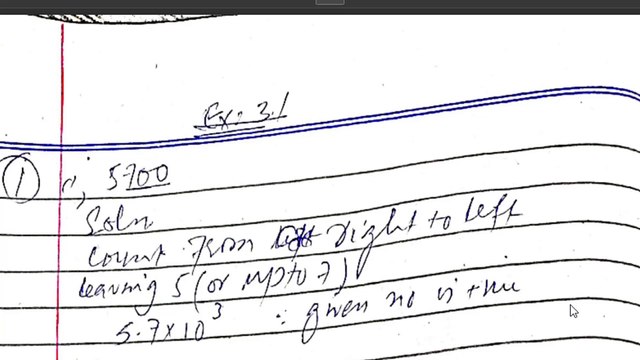 Ex: 3.1
1 5700
Soln
count from right to left
leaving 5 (or upto 7)
5.7×10³ ∴ given no is +ive